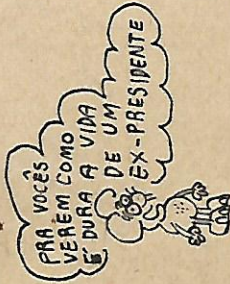 PRA VOCÊS
VEREM COMO
É DURA A VIDA
DE UM
EX-PRESIDENTE